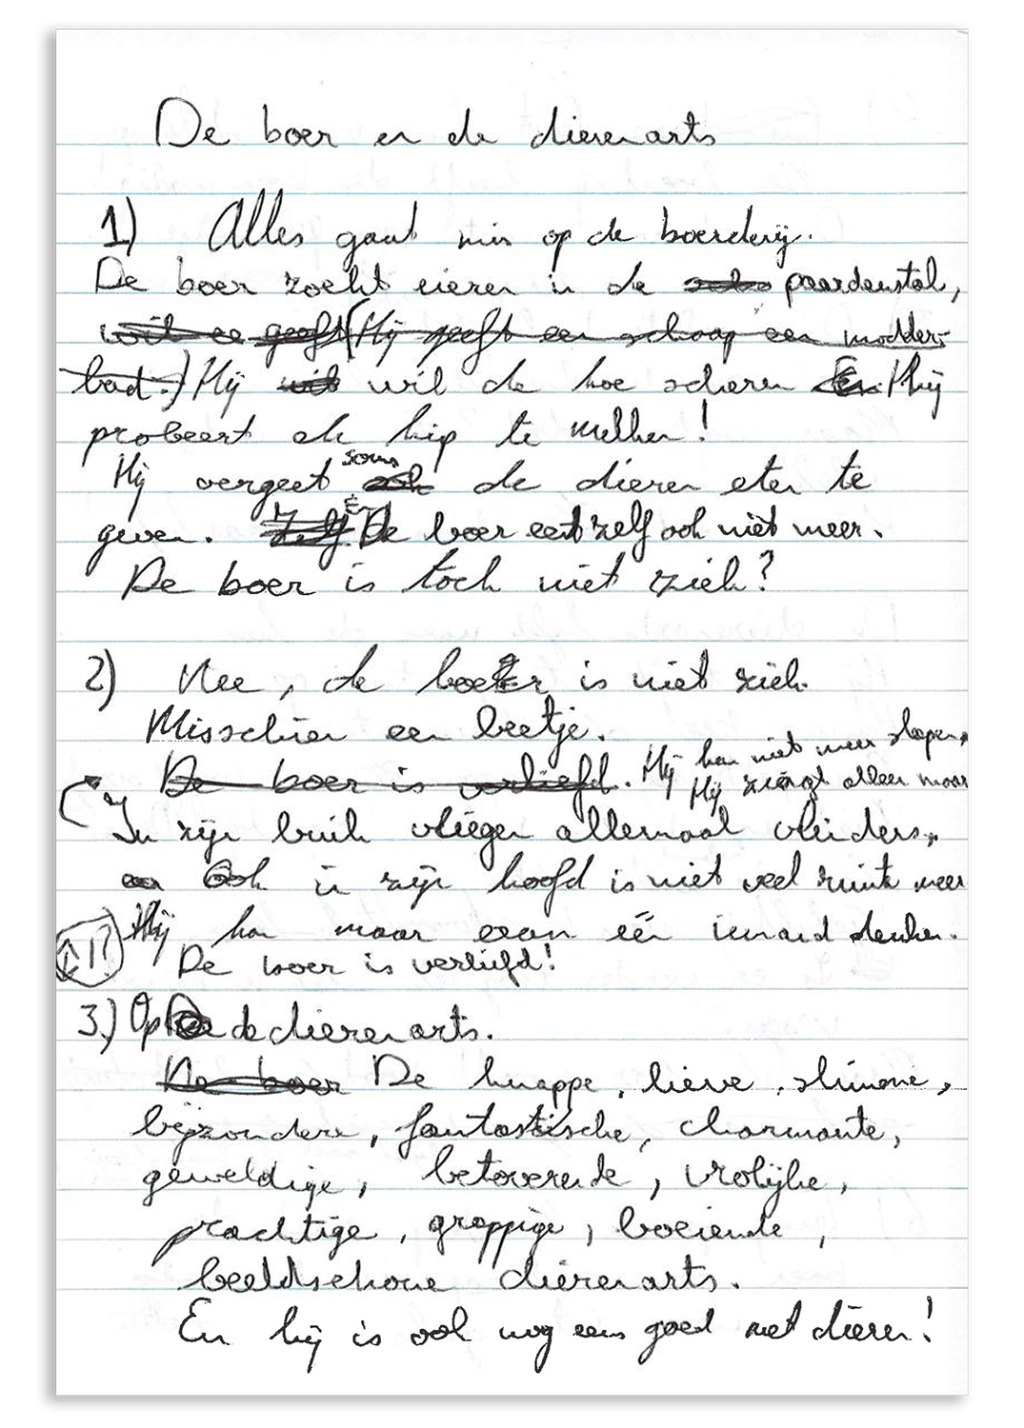 De boer en de dierenarts
1) Alles gaat mis op de boerderij.
De boer zoekt eieren in de paardenstal,
wil ee geeft (Hij geeft een schaap een modder-
bad.) Hij wil wil de koe scheren En Hij
probeert de kip te melken!
soms
Hij vergeet ook de dieren eten te
geven. Zelf En De boer eet zelf ook niet meer.
De boer is toch niet ziek?
2) Nee, de boer is niet ziek.
Misschien een beetje.
De boer is verliefd. Hij kan niet meer slapen,
Hij zingt alleen maar
In zijn buik vliegen allemaal vlinders,
en Ook in zijn hoofd is niet veel ruimte meer
Hij kan maar aan één iemand denken.
De boer is verliefd!
3.) Op de dierenarts.
De boer De knappe, lieve, slimme,
bijzondere, fantastische, charmante,
geweldige, betoverende, vrolijke,
prachtige, grappige, boeiende,
beeldschone dierenarts.
En hij is ook nog eens goed met dieren!